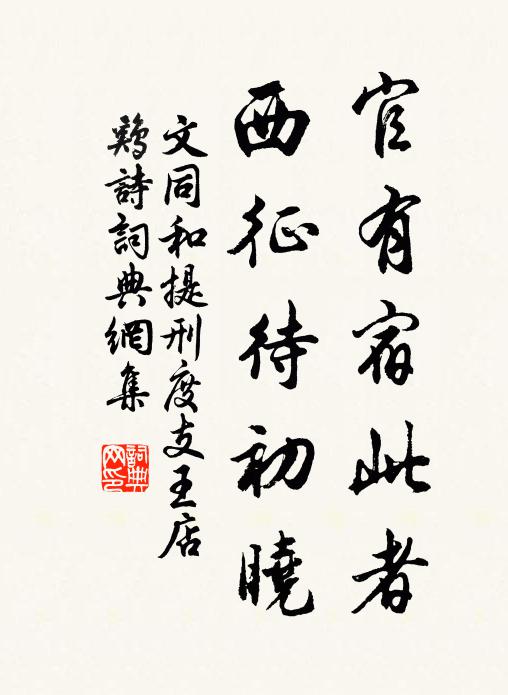 官有宿此者
西征待初曉
文同和提刑度支王店
鷄詩詞典網集
詞典网印